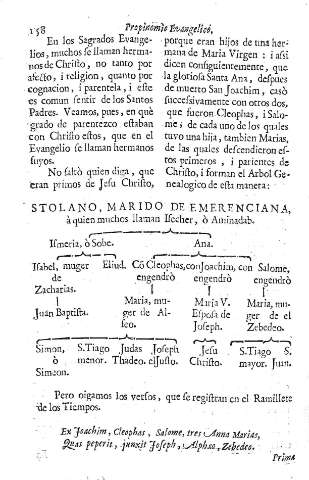 158 Propinomio Evangelicó,
En los Sagrados Evange-
lios, muchos se llaman herma-
nos de Christo, no tanto por
afecto, i religion, quanto por
cognacion, i parentela, i este
es comun sentir de los Santos
Padres. Veamos, pues, en què
grado de parentezco estaban
con Christo estos, que en el
Evangelio se llaman hermanos
suyos.
No faltò quien diga, que
eran primos de Jesu Christo,
porque eran hijos de una her-
mana de Maria Virgen : i assi
dicen consiguientemente, que
la gloriosa Santa Ana, despues
de muerto San Joachim, casò
successivamente con otros dos,
que fueron Cleophas, i Salo-
me; de cada uno de los quales
tuvo una hija, tambien Marias,
de las quales descendieron es-
tos primeros, i parientes de
Christo, i forman el Arbol Ge-
nealogico de esta manera:
STOLANO, MARIDO DE EMERENCIANA,
à quien muchos llaman Isecher, ò Aminadab.
Ismeria, ò Sobe. Ana.
Isabel, muger Eliud. Cō Cleophas, con Joachim, con Salome,
de engendrò engendrò engendrò
Zacharias.
Maria, mu- Maria V. Maria, mu-
Juan Baptista. ger de Al- Esposa de ger de el
feo. Joseph. Zebedeo.
Simon, S.Tiago Judas Joseph Jesu S.Tiago S.
ò menor. Thadeo. el Justo. Christo. mayor. Juan.
Simeon.
Pero oigamos los versos, que se registran en el Ramillete
de los Tiempos.
Ex Joachim, Cleophas, Salome, tres Anna Marias,
Quas peperit, junxit Joseph, Alphæo, Zebedeo.
Prima